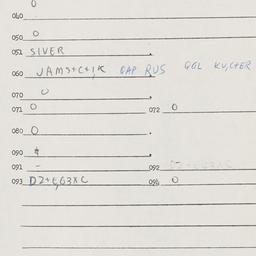 0
060
050 0
051 SIVER
060 JAMS+C+,K OAP RUS QGL KV,C+ER
070 0
071 0 072 0
080 0
090 +
091 - 092
093 D2+E,G3XC 096 0